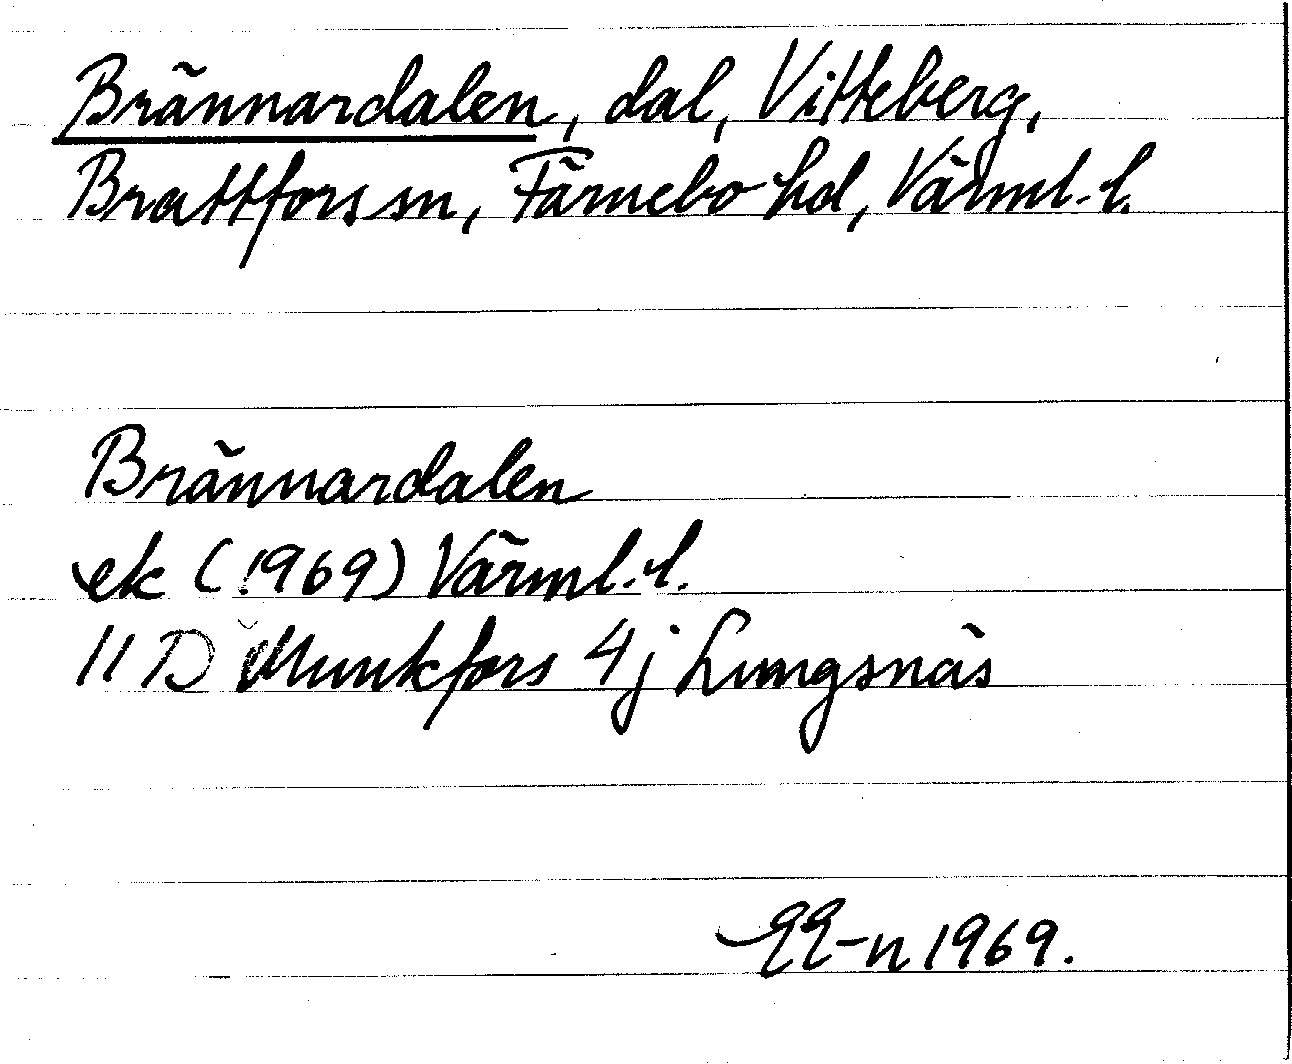 Brännardalen, dal, Vitteberg,
Brattfors sn, Färnebo hd, Värml. l.
Brännardalen
ek (1969) Värml. l.
11 D Munkfors 4j Lungsnäs
1969.